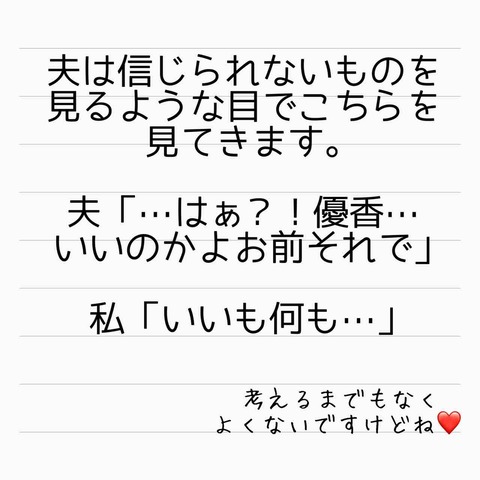 夫は信じられないものを
見るような目でこちらを
見てきます。
夫「…はぁ?！優香…
いいのかよお前それで」
私「いいも何も…」
考えるまでもなく
よくないですけどね❤️